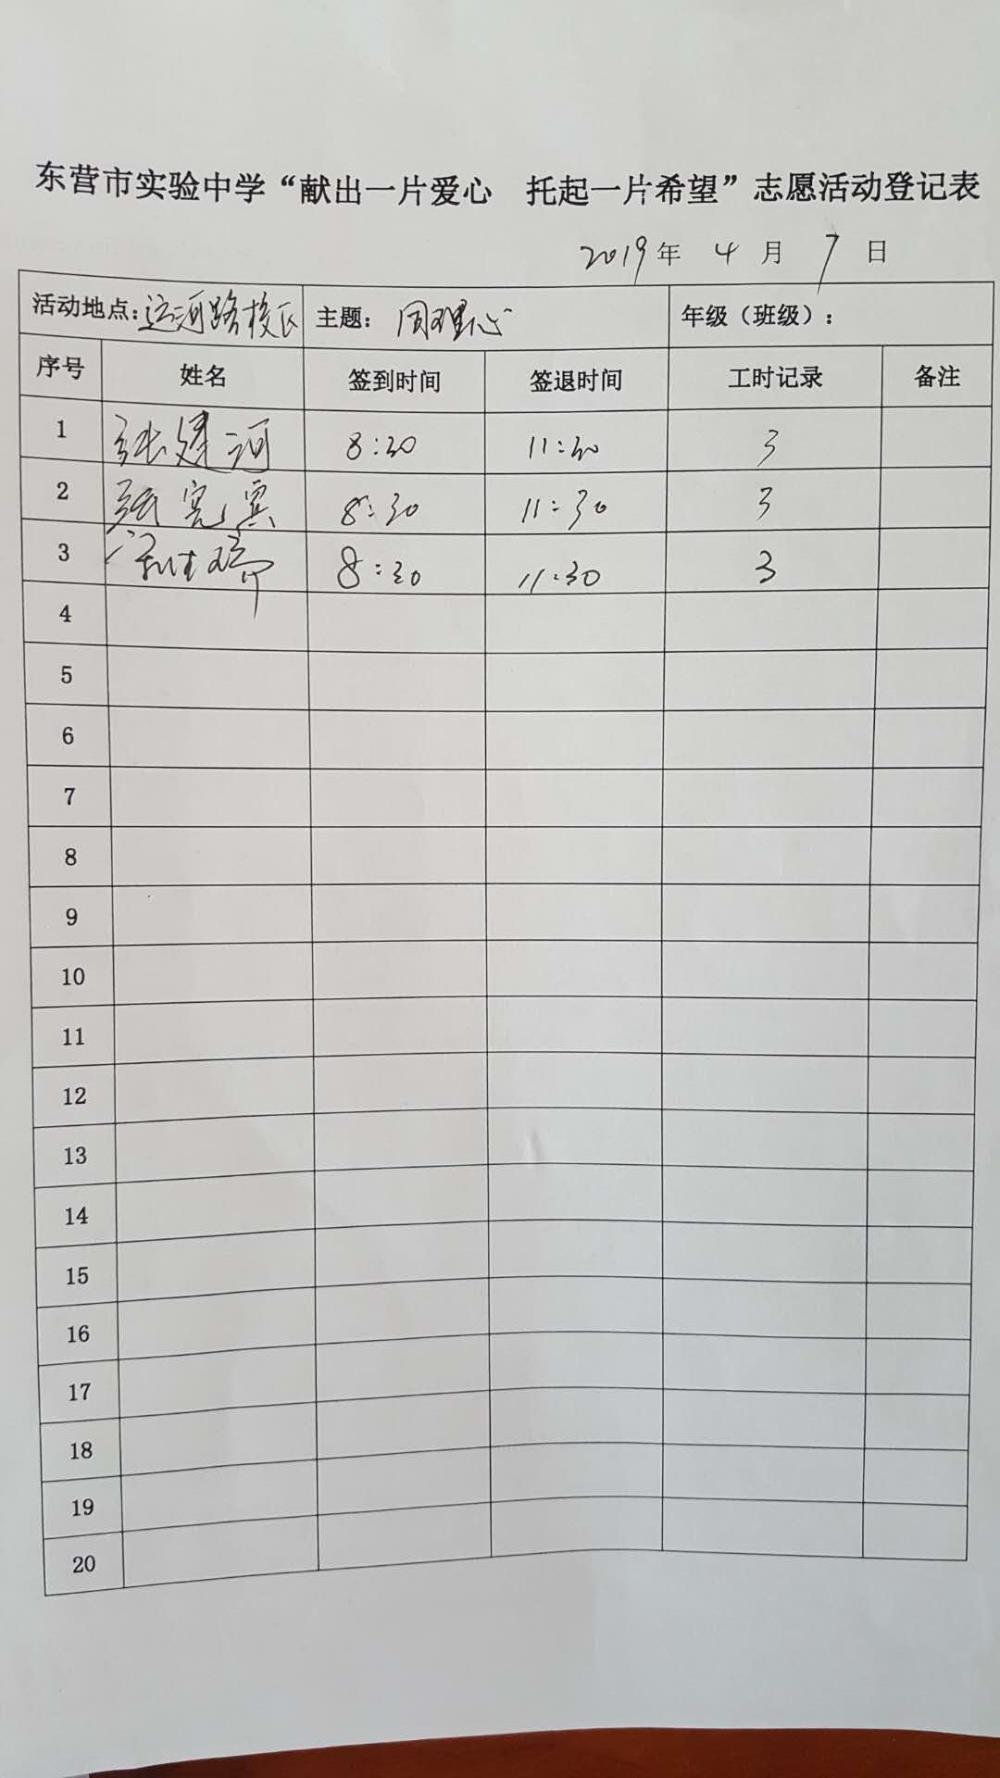 东营市实验中学“献出一片爱心 托起一片希望”志愿活动登记表
2019年 4 月 7 日
活动地点：运河路校区 主题： 同理心 年级（班级）：
序号 姓名 签到时间 签退时间 工时记录 备注
1 张建河 8:30 11:30 3
2 张宪宾 8:30 11:30 3
3 8:30 11:30 3
4
5
6
7
8
9
10
11
12
13
14
15
16
17
18
19
20